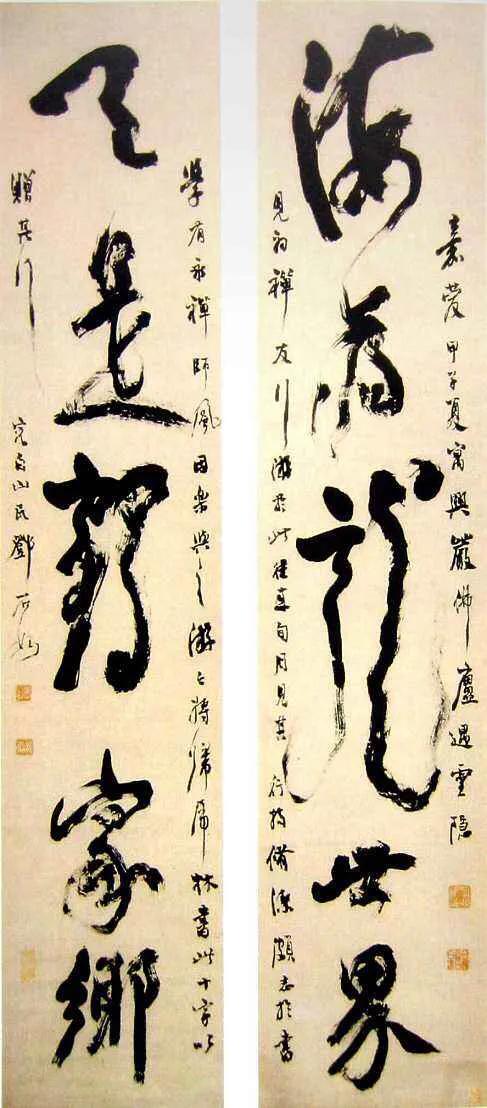 海為龍世界
天是鶴家鄉
嘉慶甲子夏寓興嚴佛廬遇雲隱
見初禪友行游於此往來旬月見其行持脩潔頗志於書
學有永禪師風因樂與之游將歸虎林書此十字以
贈其行
完白山民鄧石如